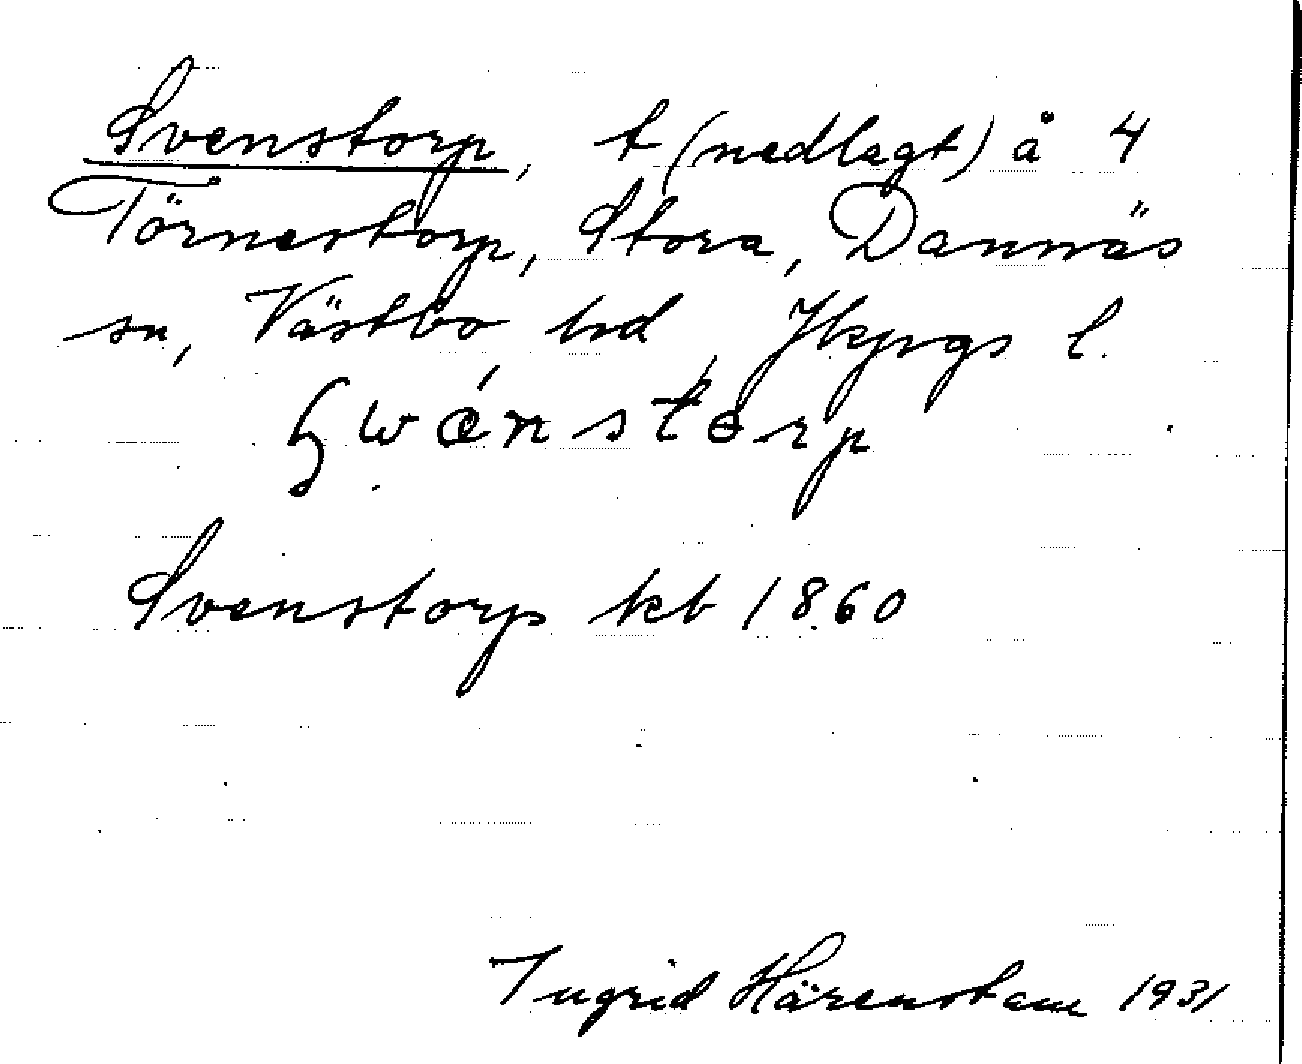 Svenstorp, t (nedlagt) å 4
Törnestorp, Stora, Dannäs
sn, Västbo hd, Jkpgs l.
Svenstorp kb 1860
Ingrid Härenstam 1931